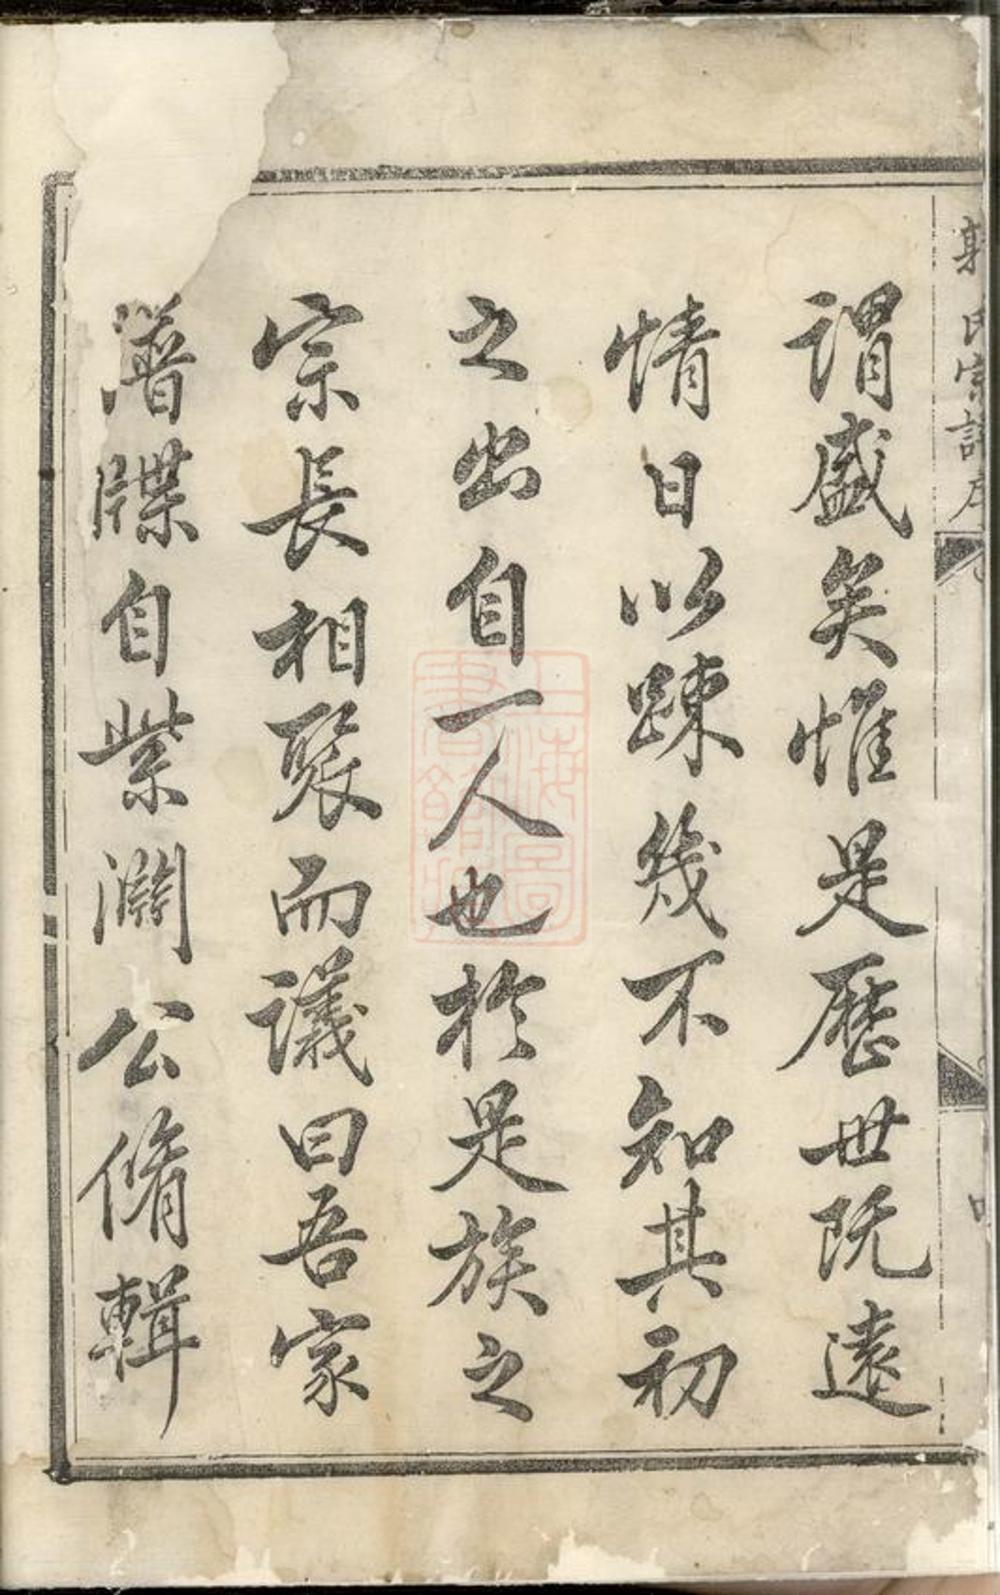 氏宗譜序
謂盛矣惟是歷世既遠
情日以踈幾不知其初
之出自一人也於是族之
宗長相聚而議曰吾家
譜牒自紫淵公脩輯